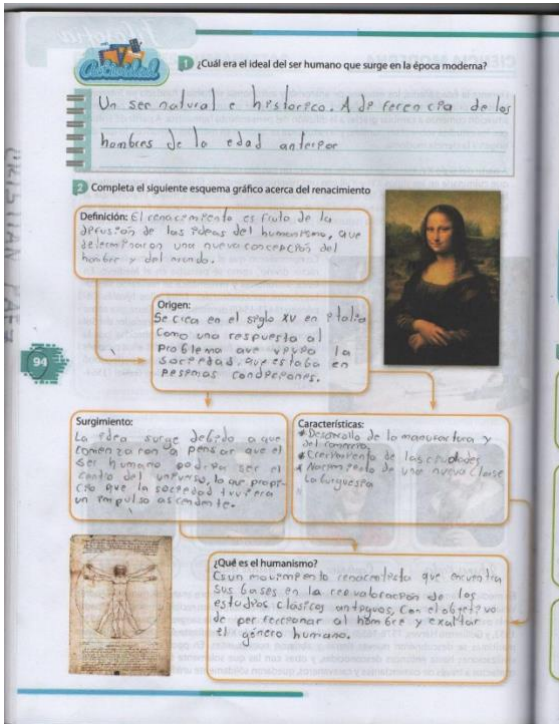 Filosofía
Actividad
1 ¿Cuál era el ideal del ser humano que surge en la época moderna?
Un ser natural e historico. A diferencia de los
hombres de la edad anterior
2 Completa el siguiente esquema gráfico acerca del renacimiento
Definición: El renacimiento es fruto de la
difusión de las ideas del humanismo, que
determinaron una nueva concepción del
hombre y del mundo.
Origen:
Se cica en el siglo XV en italia
Como una respuesta al
problema que vivia la
sociedad, que estaba en
pesimas condiciones.
94
CRISTIAN PAEZ
Surgimiento:
La idea surge debido a que
comenzaron a pensar que el
ser humano podria ser el
centro del universo, lo que propi-
cio que la sociedad tuviera
un impulso ascendente.
Características:
* Desarrollo de la manufactura y
del comercio.
* Crecimiento de las ciudades
* Nacimiento de una nueva clase
La burguesia
¿Qué es el humanismo?
Es un movimiento renacentista que encuentra
sus bases en la revaloracion de los
estudios clásicos antiguos, con el objetivo
de perfeccionar al hombre y exaltar
el género humano.